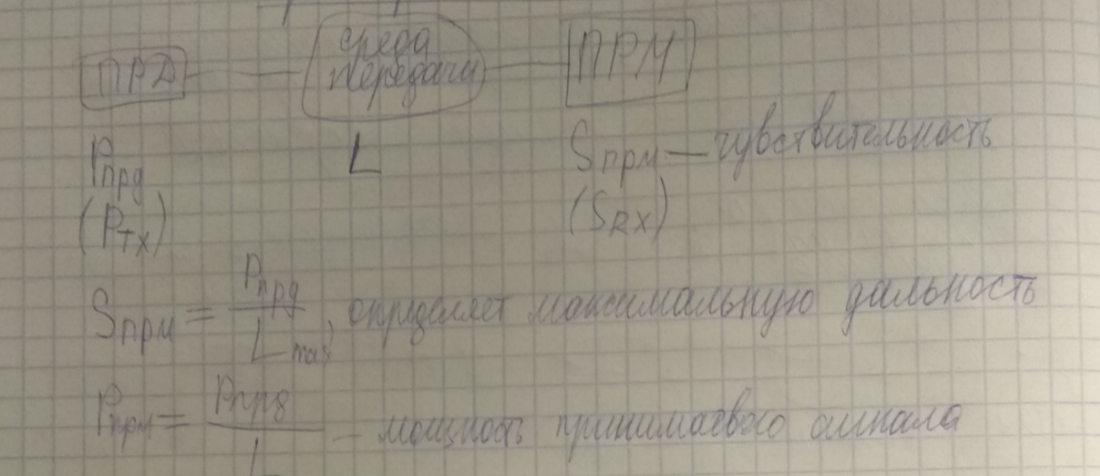 среда
ПРД передачи ПРМ
Pпрд L Sпрм — чувствительность
(PTX) (SRX)
Sпрм = Pпрд / Lmax, определяет максимальную дальность
Pпрм = Pпрд / L — мощность принимаемого сигнала